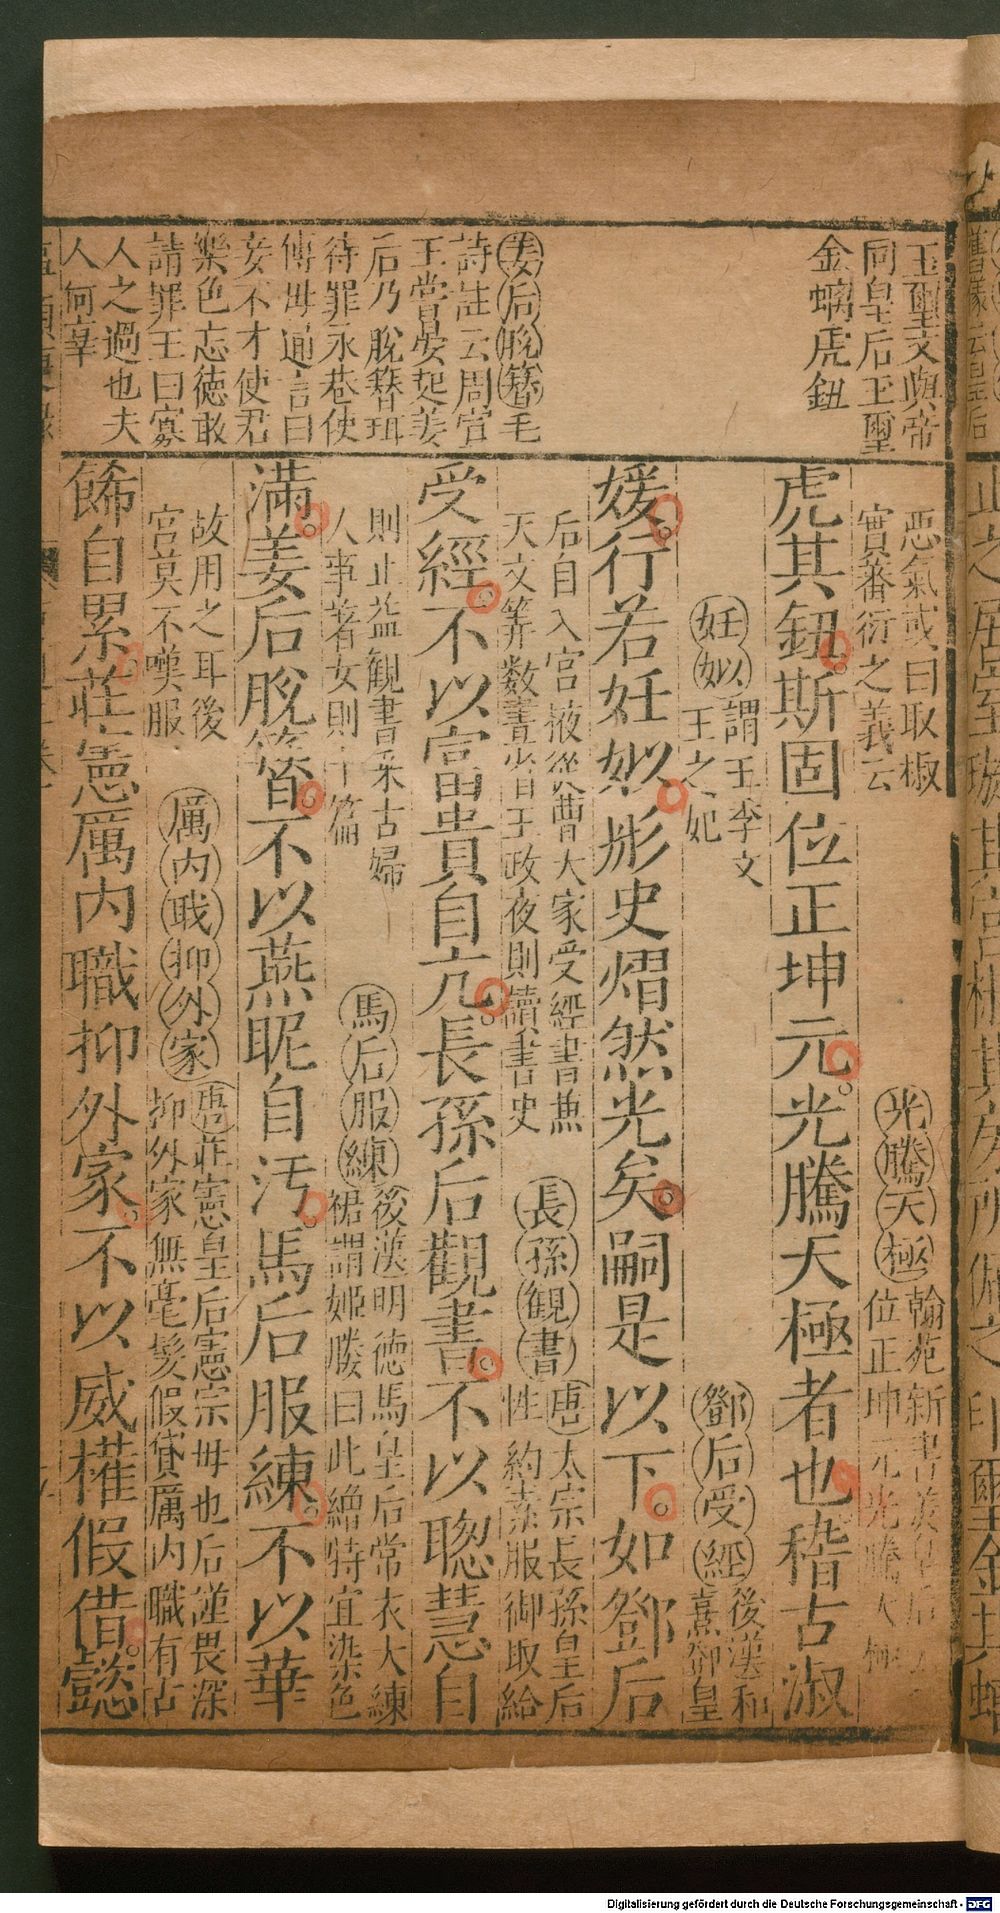 玉璽文與帝
同皇后玉璽
金螭虎鈕
姜后脫簪毛
詩註云周宣
王嘗晏起姜
后乃脫簪珥
待罪永巷使
傅毋通言曰
妾不才使君
樂色忘德敢
請罪王曰寡
人之過也夫
人何辜
惡氣或曰取椒
實蕃衍之義云
虎其鈕斯固位正坤元光騰天極者也稽古淑
光騰天極翰苑新書羙皇后
位正坤元光騰天極
妊姒謂王季文
王之妃
媛行若妊姒彤史熠然光矣嗣是以下如鄧后
鄧后受經後漢和
熹鄧皇
后自入宮掖從曹大家受經書兼
天文筭数晝省王政夜則讀書史
受經不以富貴自亢長孫后觀書不以聰慧自
長孫觀書唐太宗長孫皇后
性約素服御取給
則止益觀書采古婦
人事著女則十篇
滿姜后脫簪不以燕昵自汚馬后服練不以華
馬后服練後漢明德馬皇后常衣大練
裙謂姬媵曰此繒特宜染色
故用之耳後
宮莫不嘆服
飾自累莊憲厲内職抑外家不以威權假借懿
厲内职抑外家唐莊憲皇后憲宗毋也后謹畏深
抑外家無毫髮假貸厲内職有古
Digitalisierung gefördert durch die Deutsche Forschungsgemeinschaft - DFG